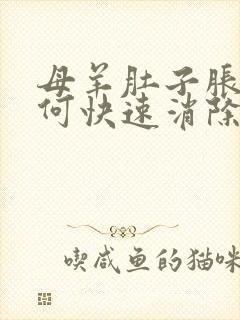 母羊肚子胀
何快速消除
喫咸鱼的猫咪